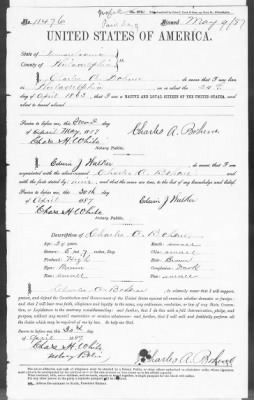 No 11476 Issued May 9/87
UNITED STATES OF AMERICA.
State of Pennsylvania
County of Philadelphia
I, Charles A. do swear that I was born
in Philadelphia on the 24th
day of April 1863, that I am a NATIVE AND LOYAL CITIZEN OF THE UNITED STATES, and
about to travel abroad
Sworn to before me, this Second
day of May, 1887
Chas H. White
Notary Public.
Charles A.
I, Edwin J. Walther
acquainted with the above-named Charles A.
and with the facts stated by him, and that the same are true, to the best of my knowledge and belief.
Sworn to before me, this 30th
day of April 1887
Chas H White
Notary Public.
Edwin J Walther
Description of Charles A.
Age: 24 years
Mouth: small
Stature: 5 ft 7 inches, Eng.
Chin: small
Forehead: High
Hair: Brown
Eyes: Brown
Complexion: Dark
Nose: small
Face: small
I, Charles A. do solemnly swear that I will support,
protect, and defend the Constitution and Government of the United States against all enemies, whether domestic or foreign;
and that I will bear true faith, allegiance, and loyalty to the same, any ordinance, resolution, or law of any State, Convention,
or Legislature to the contrary notwithstanding; and further, that I do this with a full determination, pledge, and
purpose, without any mental reservation or evasion whatsoever; and further, that I will well and faithfully perform all
the duties which may be required of me by law. So help me God.
Sworn to before me, this 30th
day of April 1887
Chas H. White
Notary Public
Charles A.